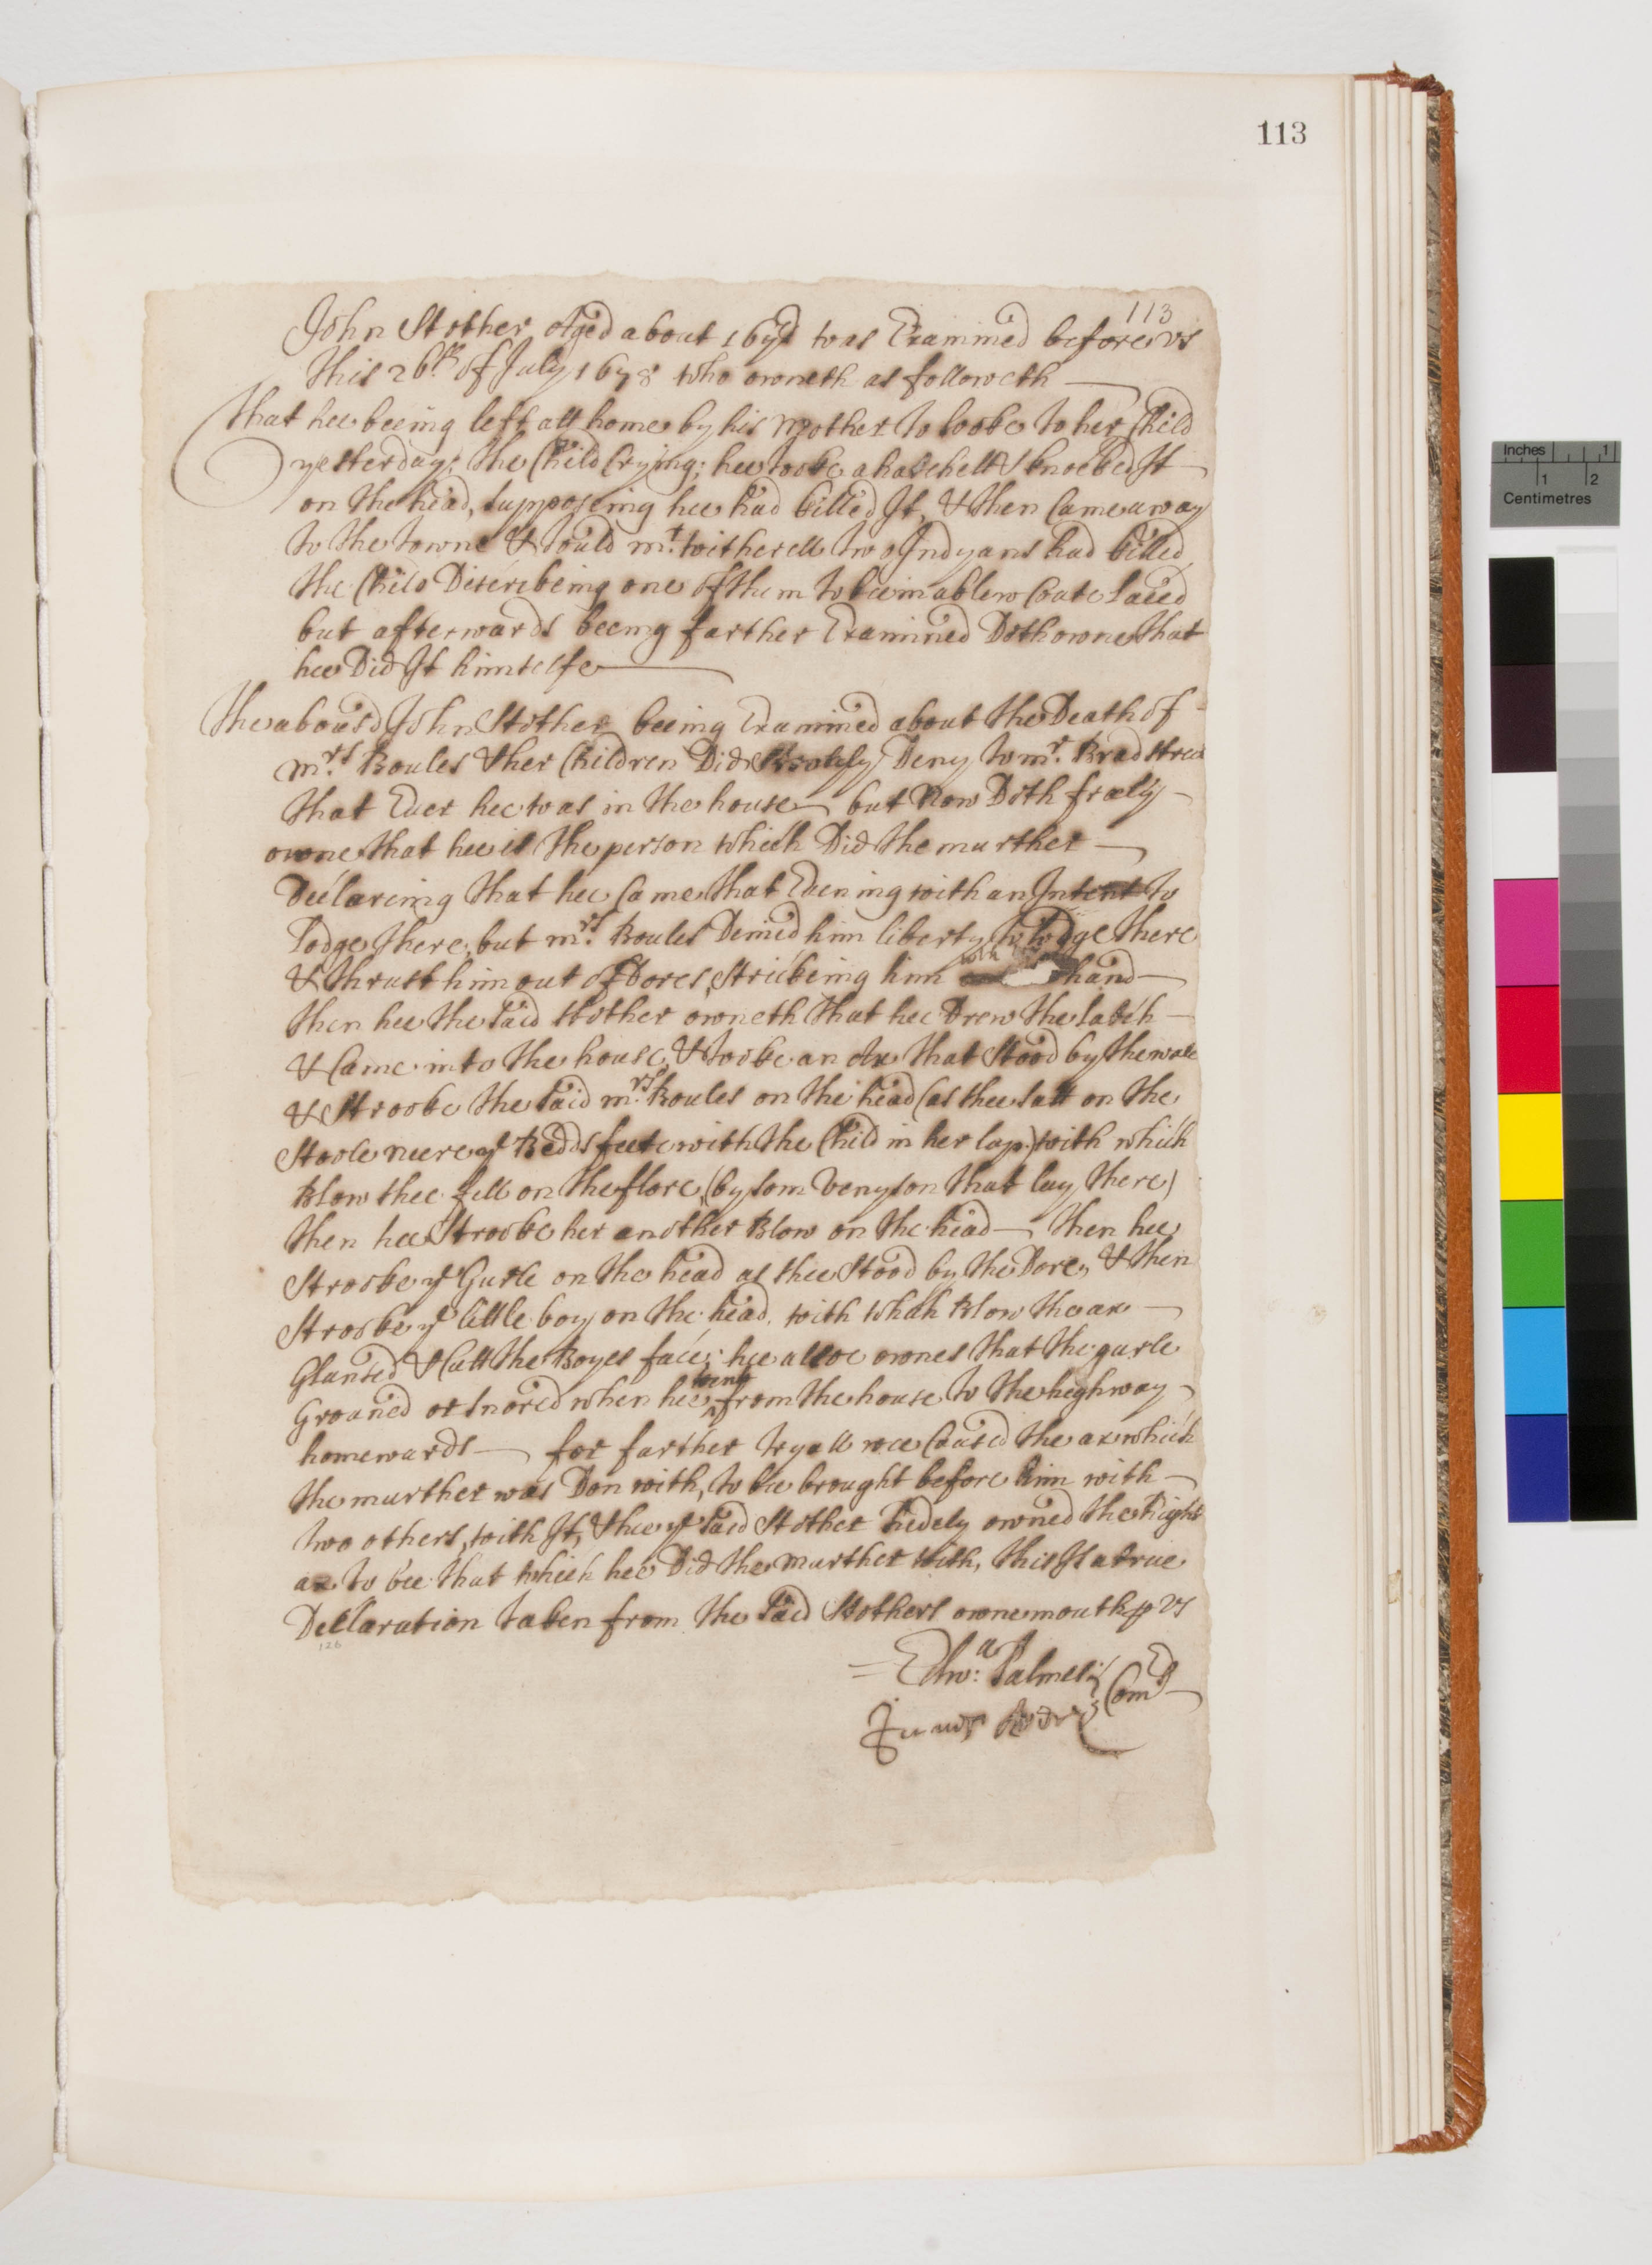 113
113
John Stother Aged about 16 yrs was Examined before us
this 26th of July 1678 who owneth as followeth
That hee beeing left att home by his Mother to looke to her Child
yesterday; the Child Crying; hee tooke a hatchett & knocked It
on the head, supposeing hee had killed It, & then Came away
to the towne & tould mr. witherell two Indyans had killed
the Child Discribeing one of them to bee in a blew Coate Laced
but afterwards beeing farther Examined Doth owne that
hee Did It himselfe
The abousd John Stother beeing Examined about the Death of
mrs. Roules & her Children Did Deny to mr. Bradstreet
that Ever hee was in the house but Now Doth freely
owne that hee is the person which Did the murther
Declareing that hee Came that Evening with an Intent to
Lodge there, but mrs. Roules Denied him liberty to lodge there
& thrust him out of Dores, Strickeing him with hand
then hee the said Stother owneth that hee Drew the latch
& Came into the house, & tooke an Ax that Stood by the wall
& Strooke the said mrs. Roules on the head (as shee satt on the
Stoole neere ye Bedds feete with the Child in her lap) with which
Blow shee fell on the flore, (by som Venyson that lay there)
then hee Strooke her another Blow on the head then hee
Strooke ye Gurle on the head as shee Stood by the Dore, & then
Strooke ye little boy on the head, with which Blow the ax
Glansed & Cutt the Boyes face; hee alsoe ownes that the gurle
Groaned or Snored when hee went from the house to the highway
homewards for farther tryall wee Caused the ax which
the murther was Don with, to bee brought before him with
two others, with It, & hee ye said Stother Redely owned the Right
ax to bee that which hee Did the Murther with, this Is a true
Declaration taken from the said Stothers owne mouth p us
Edwa: Palmes
Comrs
126